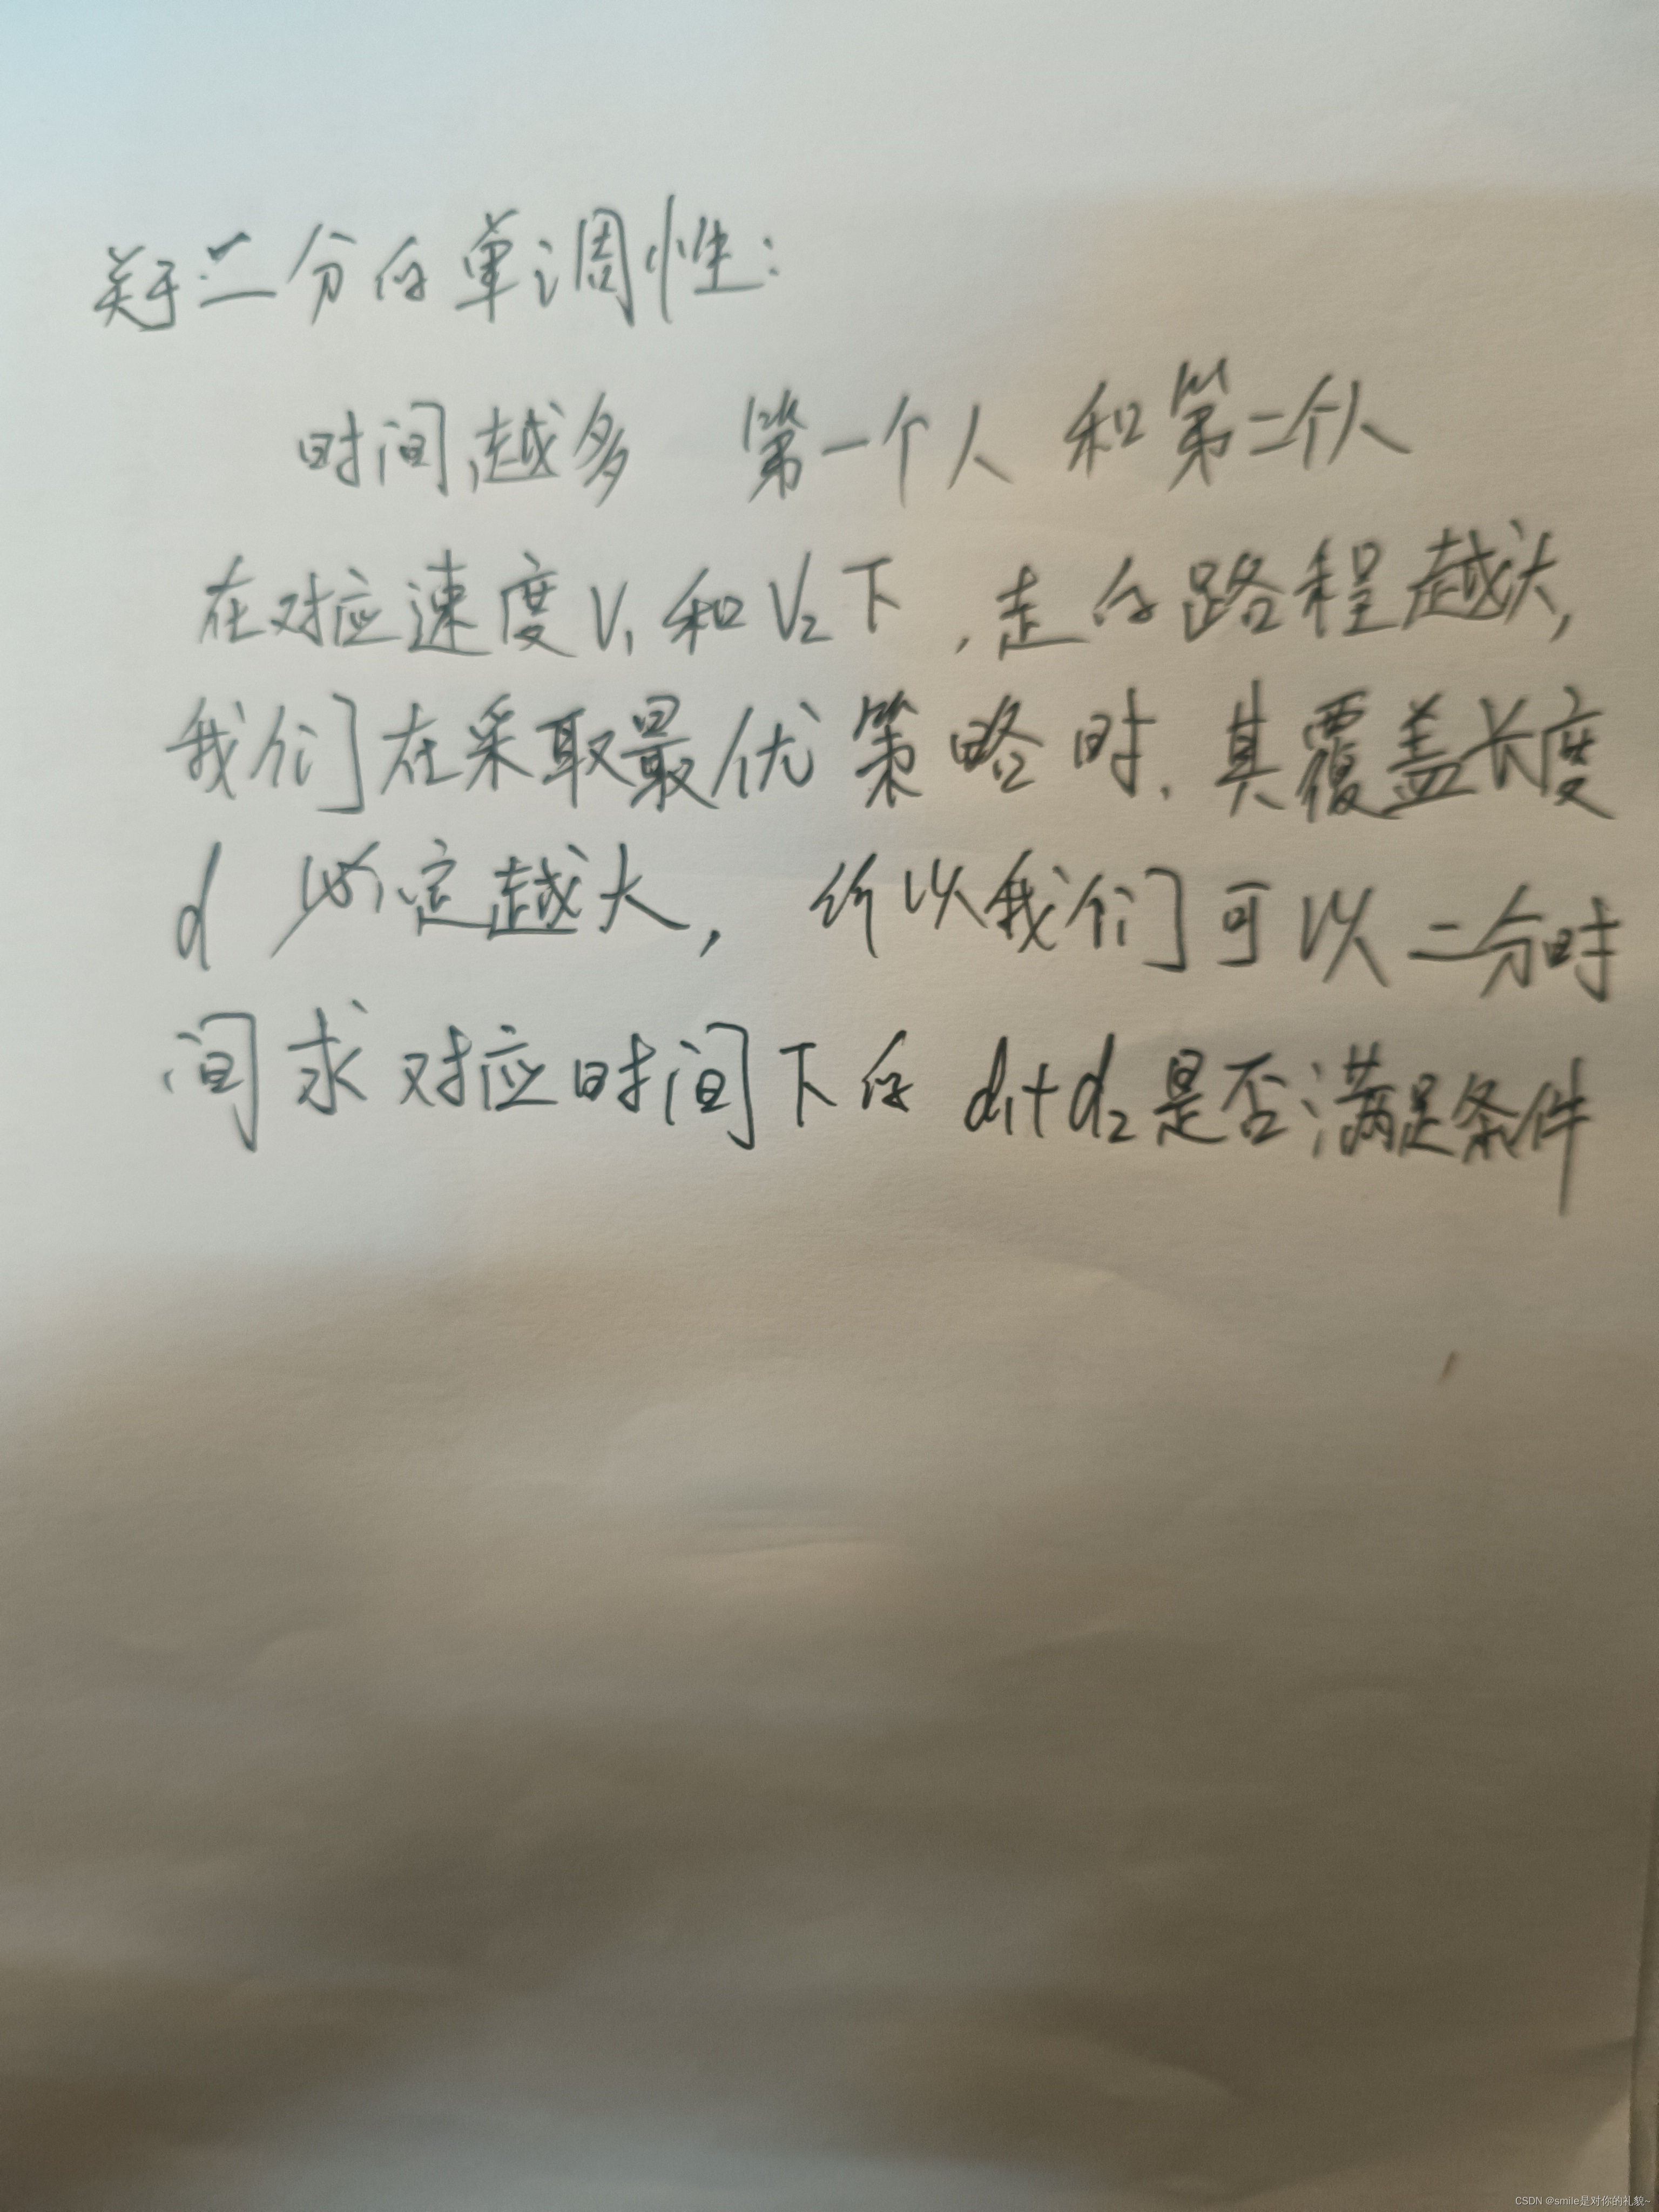 关于二分的单调性:
时间越多 第一个人 和第二个人
在对应速度V₁和V₂下,走的路程越大,
我们在采取最优策略时,其覆盖长度
d 必定越大, 所以我们可以二分时
间求对应时间下的 d₁+d₂是否满足条件
CSDN @smile是对你的礼貌~